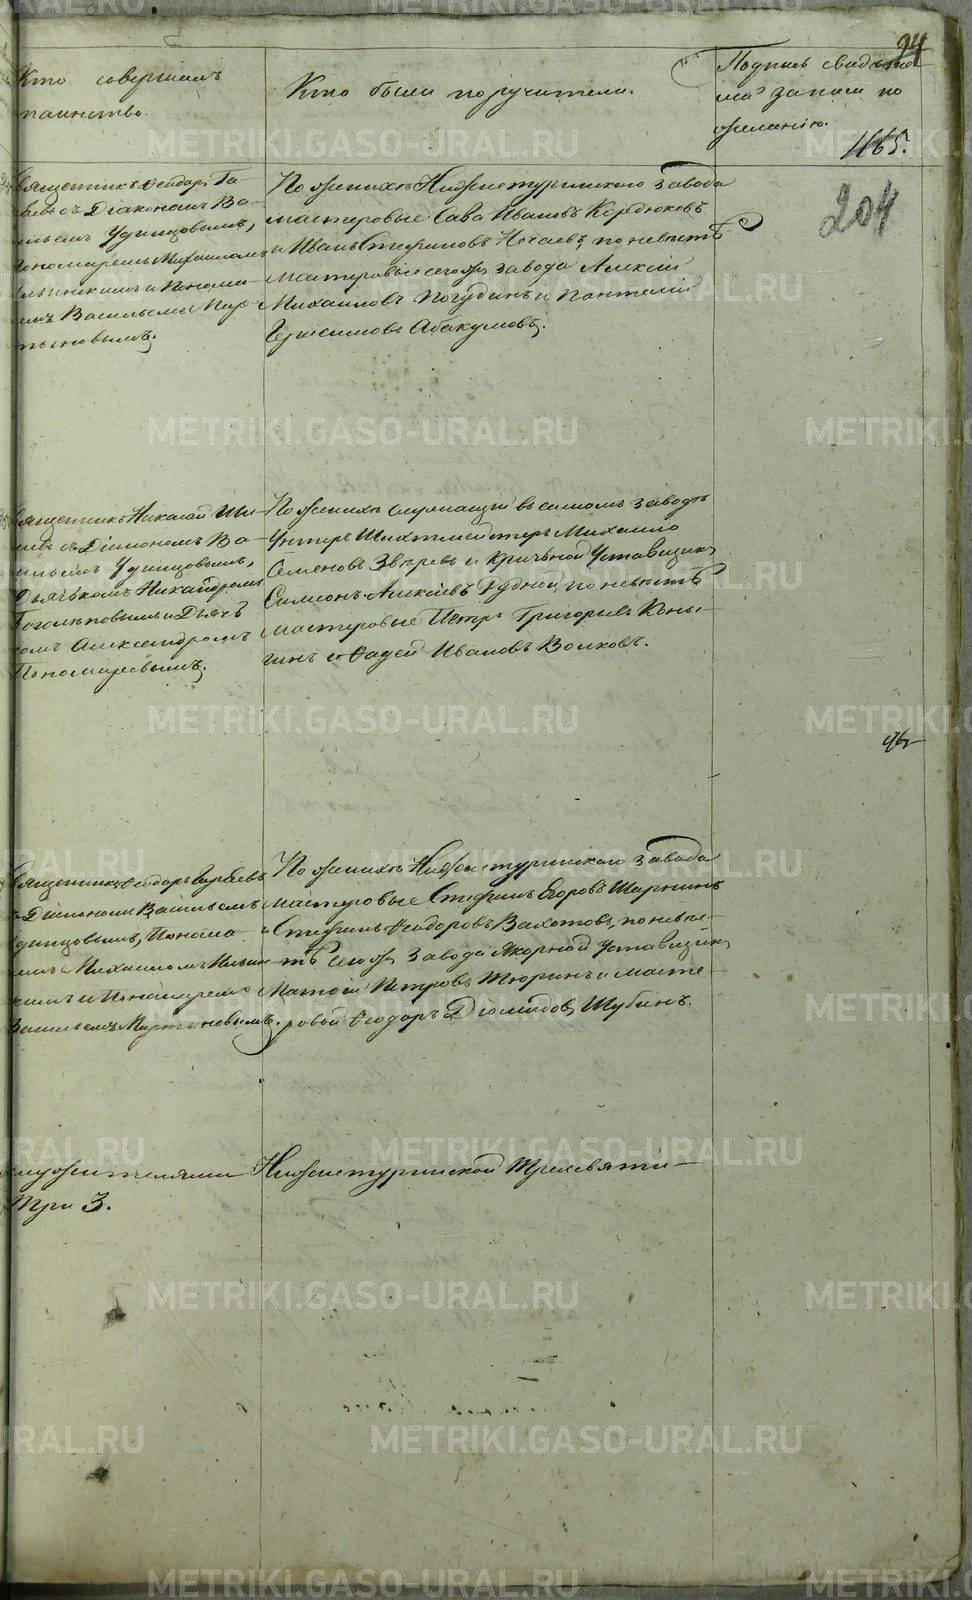 94
Кто совершалъ
таинство.
Кто были поручители.
Подпись свидѣте
лей записи по
желанію.
1165.
204
Священникъ Ѳеодоръ Га
съ Діакономъ Ва
сильемъ Удинцовымъ,
Пономаремъ Михаиломъ
Ильинскимъ и Понома
ремъ Васильемъ Мар
тыновымъ.
По женихѣ Нижнетуринскаго завода
мастеровые Сава Ивановъ Кордюковъ
и Иванъ Стефановъ Нечаевъ, по невѣстѣ
мастеровые сегожъ завода Алексѣй
Михаиловъ Погудинъ и Пантелей
Герасимовъ Абакумовъ.
Священникъ Николай Ши
съ Діакономъ Ва
сильемъ Удинцовымъ,
Дьячкомъ Никандромъ
и Дьяч
комъ Александромъ
Пономаревымъ.
По женихѣ служащій въ самомъ заводѣ
Унтеръ Шихтмейстеръ Михаило
Семеновъ Звѣревъ и кричной Уставщикъ
Симеонъ Алексѣевъ Рудной, по невѣстѣ
мастеровые Петръ Григорьевъ Коны
гинъ и Ѳадей Ивановъ Волковъ.
Священникъ Ѳеодоръ
съ Діакономъ Васильемъ
Удинцовымъ, Понома
ремъ Михаиломъ Ильин
скимъ и Пономаремъ
Васильемъ Мартыновымъ.
По женихѣ Нижнетуринскаго завода
мастеровые Стефанъ Егоровъ Ширкинъ
и Стефанъ Ѳеодоровъ Вахотовъ, по невѣс-
тѣ сегожъ завода Якорной Уставщикъ
Матѳей Петровъ Тюринъ и масте-
ровой Ѳеодоръ Діомидовъ Шубинъ.
служителями Нижнетуринской Трехсвяти-
Три 3.
METRIKI.GASO-URAL.RU